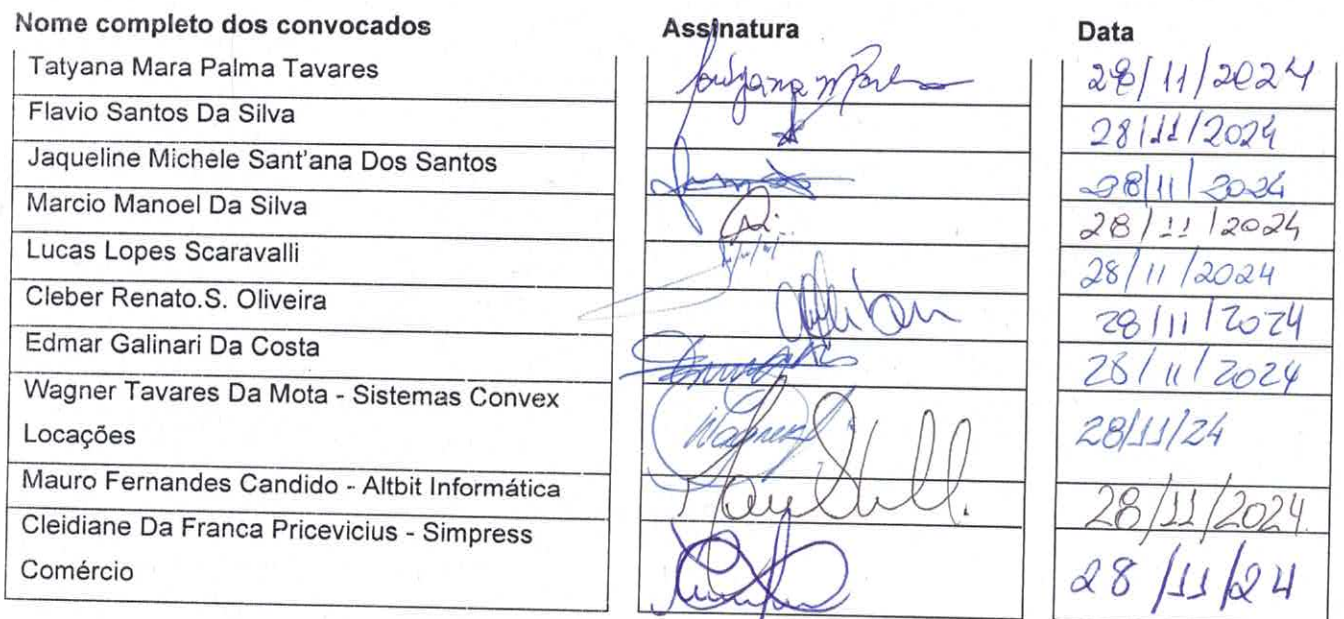 Nome completo dos convocados Assinatura Data
Tatyana Mara Palma Tavares 28/11/2024
Flavio Santos Da Silva 28/11/2024
Jaqueline Michele Sant'ana Dos Santos 28/11/2024
Marcio Manoel Da Silva 28/11/2024
Lucas Lopes Scaravalli 28/11/2024
Cleber Renato.S. Oliveira 28/11/2024
Edmar Galinari Da Costa 28/11/2024
Wagner Tavares Da Mota - Sistemas Convex Wagner 28/11/24
Locações
Mauro Fernandes Candido - Altbit Informática 28/11/2024
Cleidiane Da Franca Pricevicius - Simpress 28/11/24
Comércio